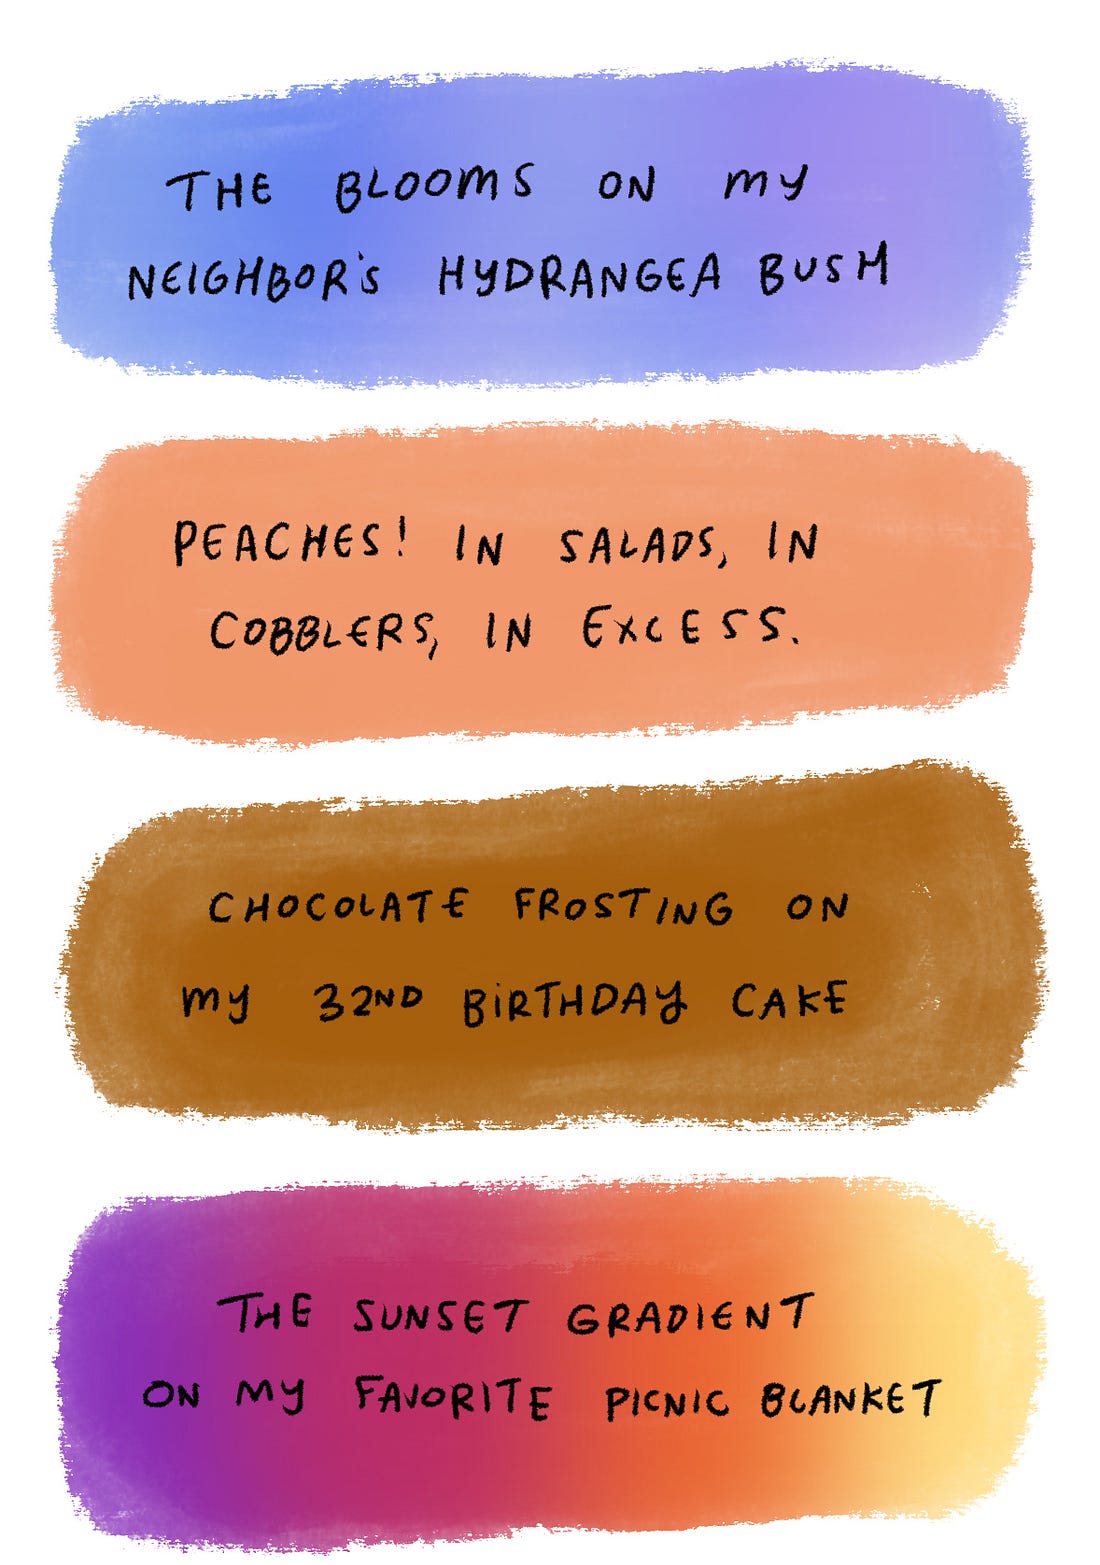 THE BLOOMS ON MY
NEIGHBOR'S HYDRANGEA BUSH
PEACHES! IN SALADS, IN
COBBLERS, IN EXCESS.
CHOCOLATE FROSTING ON
MY 32ND BIRTHDAY CAKE
THE SUNSET GRADIENT
ON MY FAVORITE PICNIC BLANKET